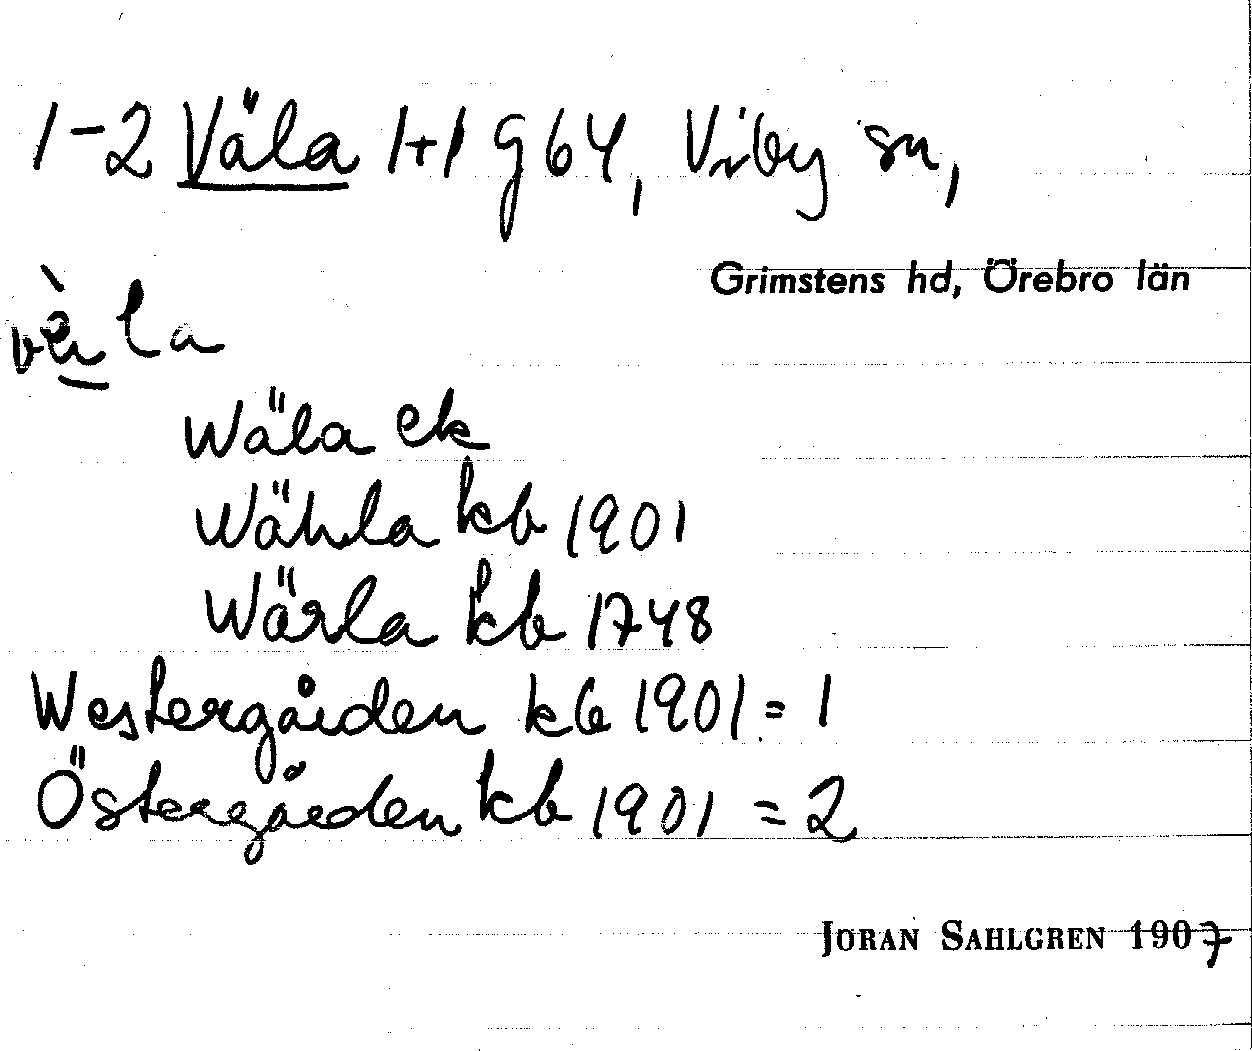 1-2 Väla 1+1 g 64, Viby sn,
Grimstens hd, Örebro län
vὲla
Wäla ek
Wähla kb 1901
Wärla kb 1748
Westergården kb 1901 = 1
Östergården kb 1901 = 2
JÖRAN SAHLGREN 1907